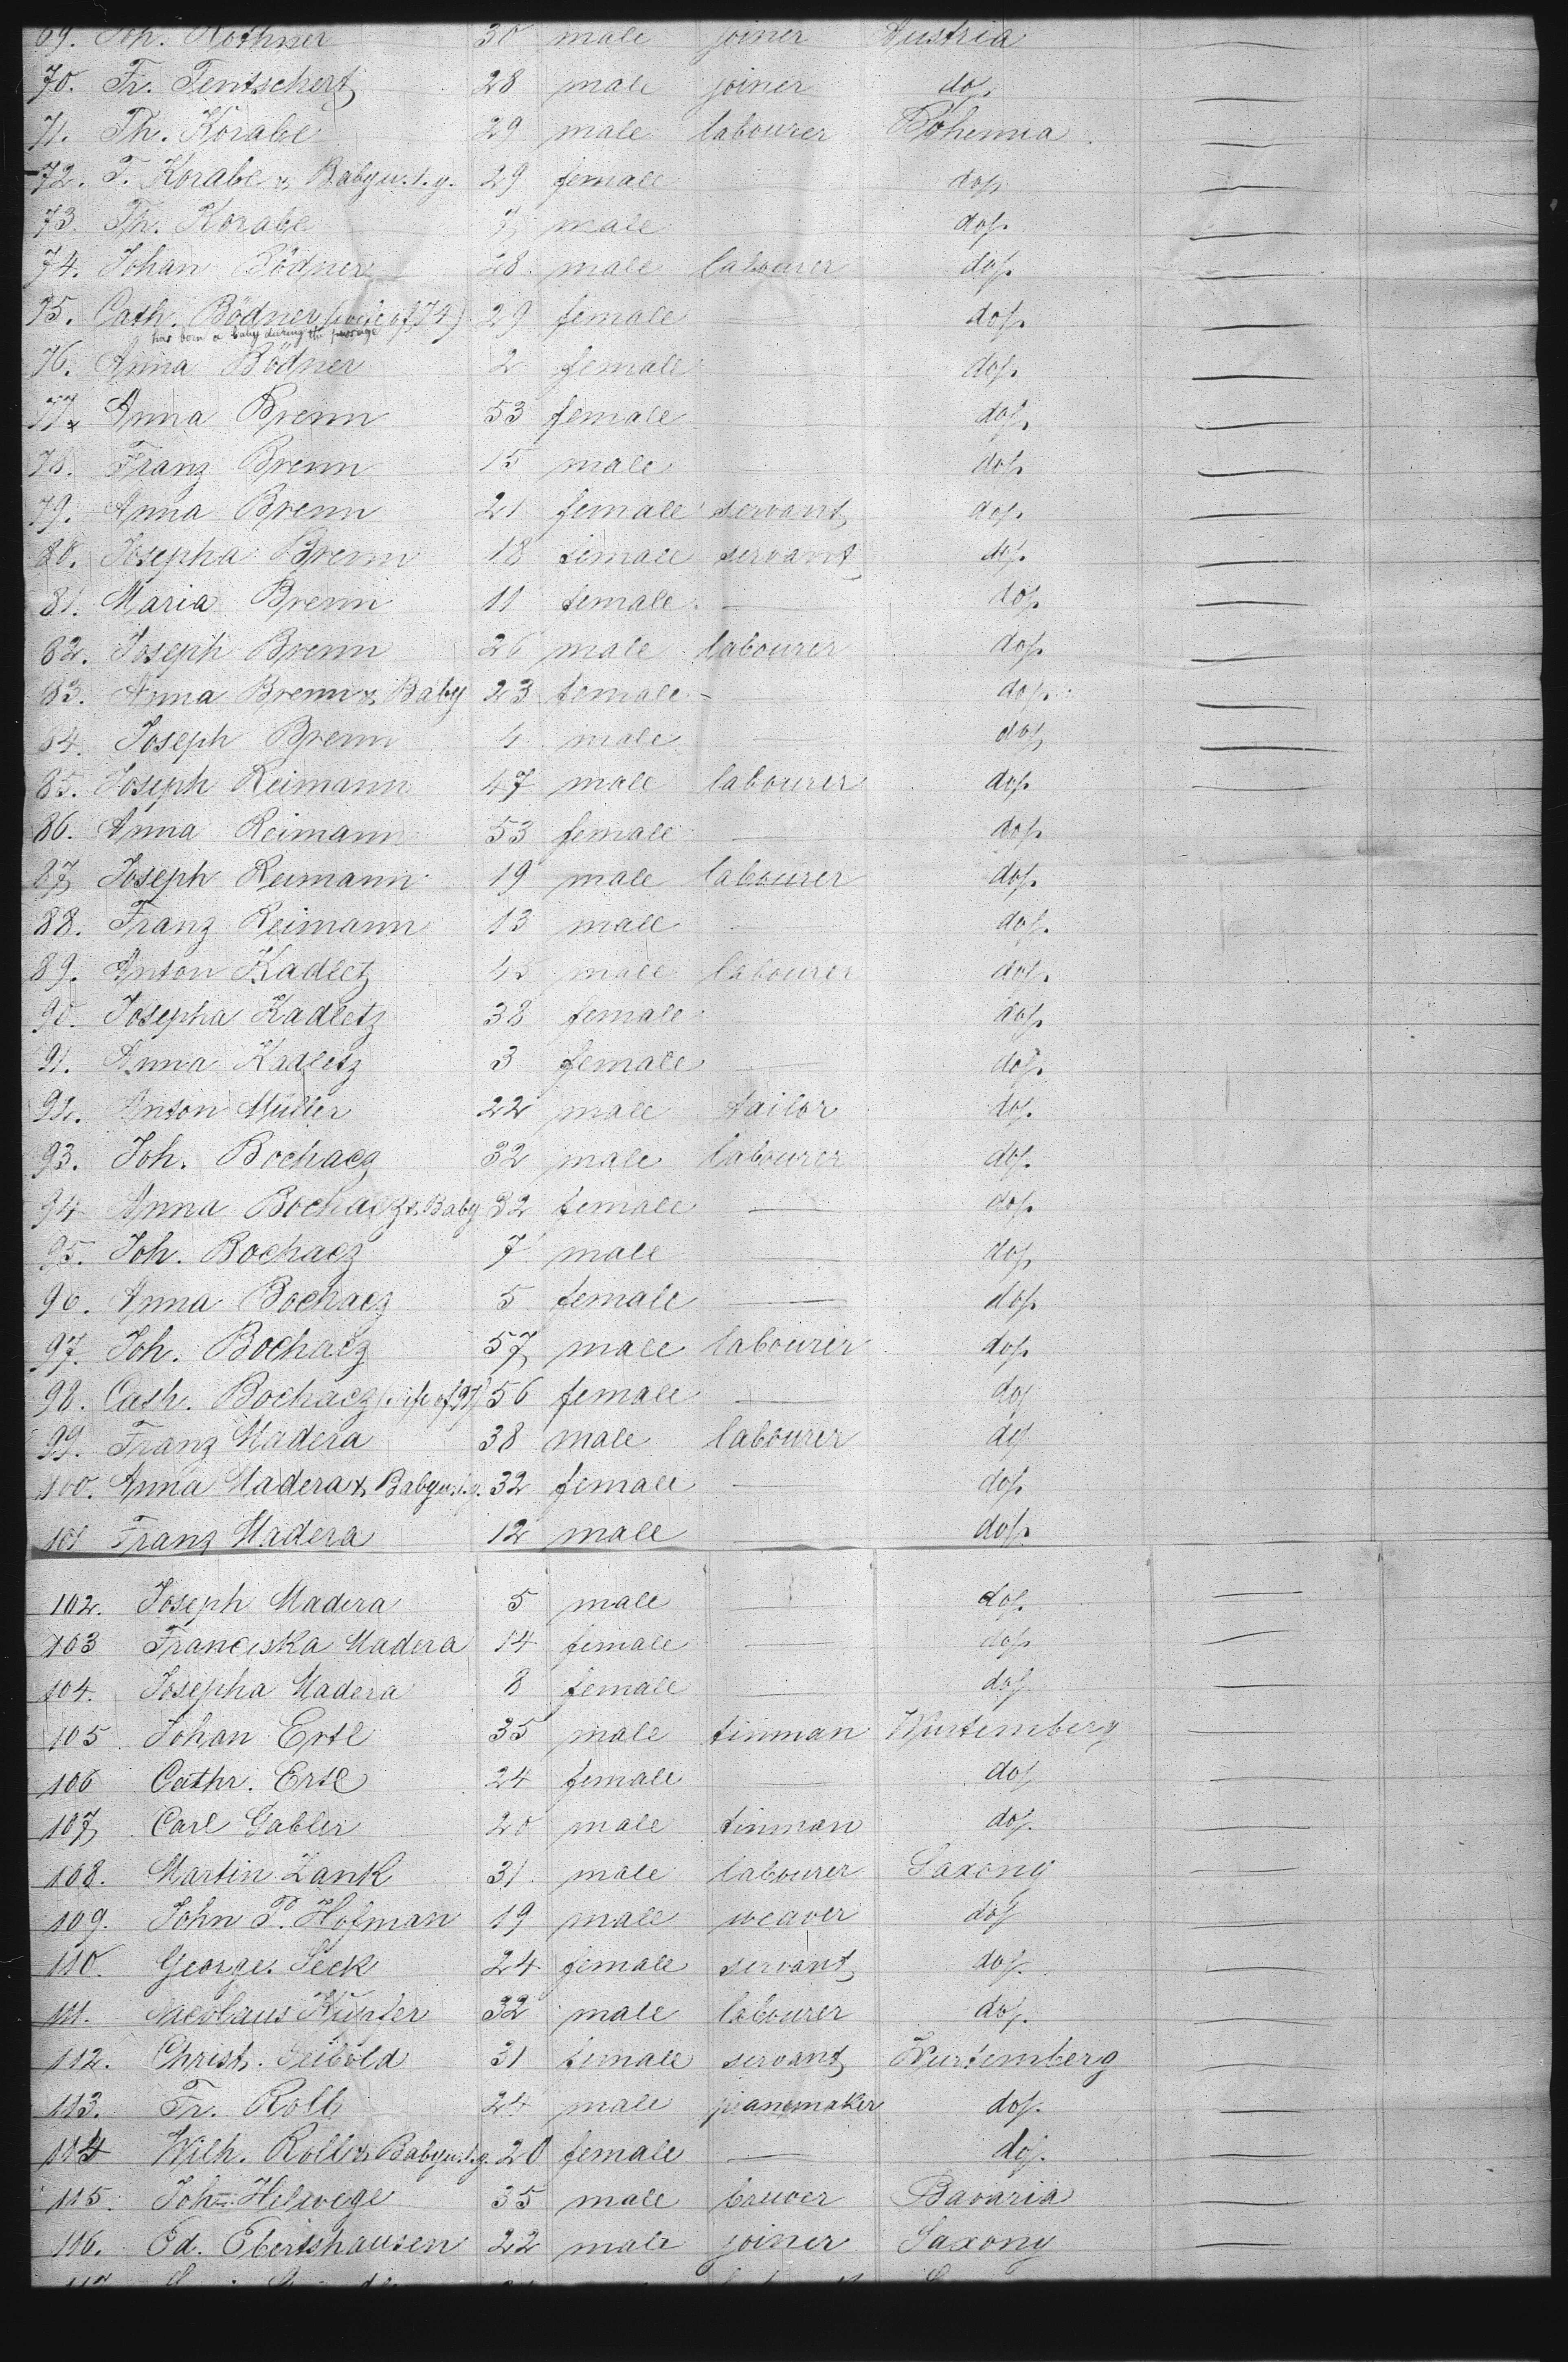 69. Joh. Köthner 30 male joiner Austria
70. Fr. Tentschert 28 male joiner do.
71. Th. Korabe 29 male labourer Bohemia
72. T. Korabe & Baby u. 1. y. 29 female do.
73. Th. Korabe 7 male do.
74. Johan Bödner 28 male labourer do.
75. Cath. Bödner (wife of 74) 29 female do.
has born a baby during the passage
76. Anna Bödner 2 female do.
77. Anna Brenn 53 female do.
78. Franz Brenn 15 male do.
79. Anna Brenn 21 female servant do.
80. Josepha Brenn 18 female servant do.
81. Maria Brenn 11 female — do.
82. Joseph Brenn 26 male labourer do.
83. Anna Brenn & Baby 23 female - do.
84. Joseph Brenn 4 male — do.
85. Joseph Reimann 47 male labourer do.
86. Anna Reimann 53 female — do.
87. Joseph Reimann 19 male labourer do.
88. Franz Reimann 13 male do.
89. Anton Kadletz 45 male labourer do.
90. Josepha Kadletz 38 female do.
91. Anna Kadletz 3 female — do.
92. Anton Müller 22 male tailor do.
93. Joh. Bochacz 32 male labourer do.
94 Anna Bochacz & Baby 32 female — do.
95. Joh. Bochacz 7 male — do.
96. Anna Bochacz 5 female — do.
97. Joh. Bochacz 57 male labourer do.
98. Cath. Bochacz (wife of 97) 56 female — do.
99. Franz Madera 38 male labourer do.
100. Anna Madera & Baby u. 1. y. 32 female — do.
101 Franz Madera 12 male — do.
102. Joseph Madera 5 male — do.
103 Franciska Madera 14 female — do.
104. Josepha Madera 8 female — do.
105 Johan Ertl 35 male tinman Wurtemberg
106 Cathr. Ertl 24 female — do.
107 Carl Gabler 20 male tinman do.
108. Martin Zank 31 male labourer Saxony
109. John P. Hofman 19 male weaver do.
110. George Seck 24 female servant do.
111. Nicolaus Kupfer 32 male labourer do.
112. Christ. Seibold 31 female servant Wurtemberg
113. Fr. Roll 24 male pianomaker do.
114 Wilh. Roll & Baby u. 1. y. 20 female — do.
115. Joh. Helwege 35 male bruver Bavaria
116. Ed. Ebertshausen 22 male joiner Saxony